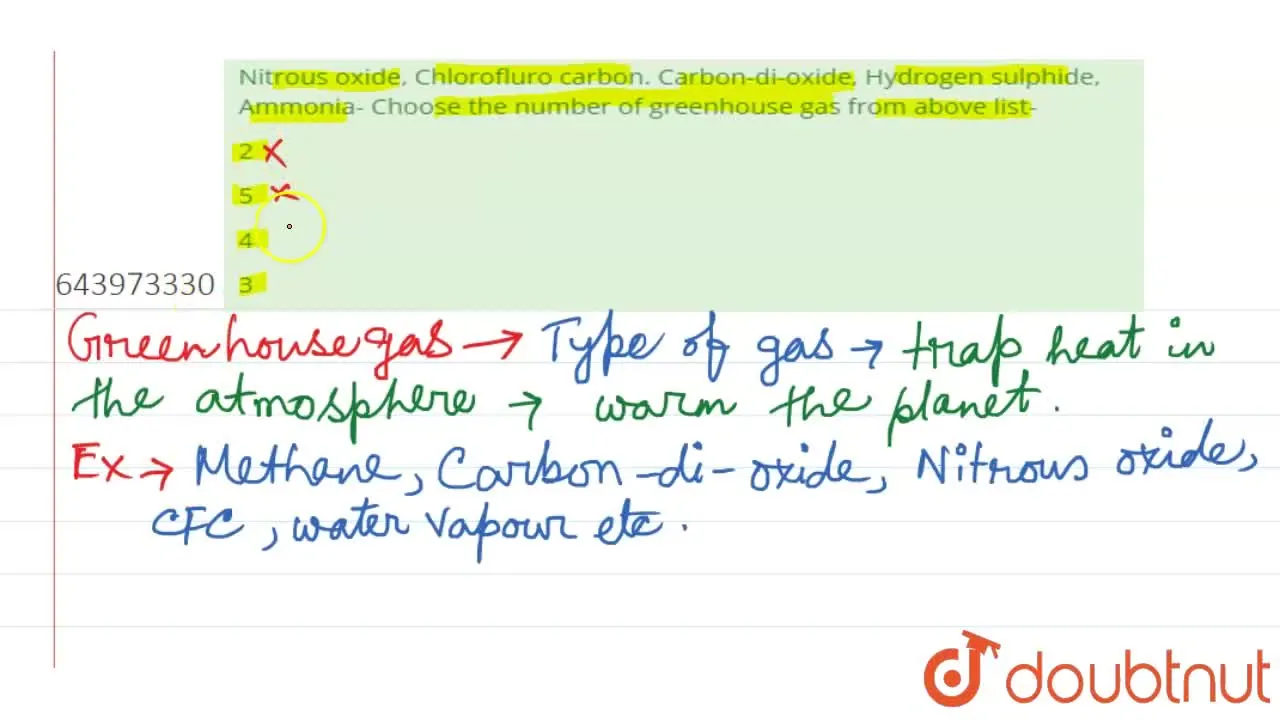 Nitrous oxide, Chlorofluro carbon. Carbon-di-oxide, Hydrogen sulphide,
Ammonia- Choose the number of greenhouse gas from above list-
2 X
5 X
4
643973330 3
Greenhouse gas → Type of gas → trap heat in
the atmosphere → warm the planet.
Ex → Methane, Carbon-di-oxide, Nitrous oxide,
CFC, water vapour etc.
doubtnut